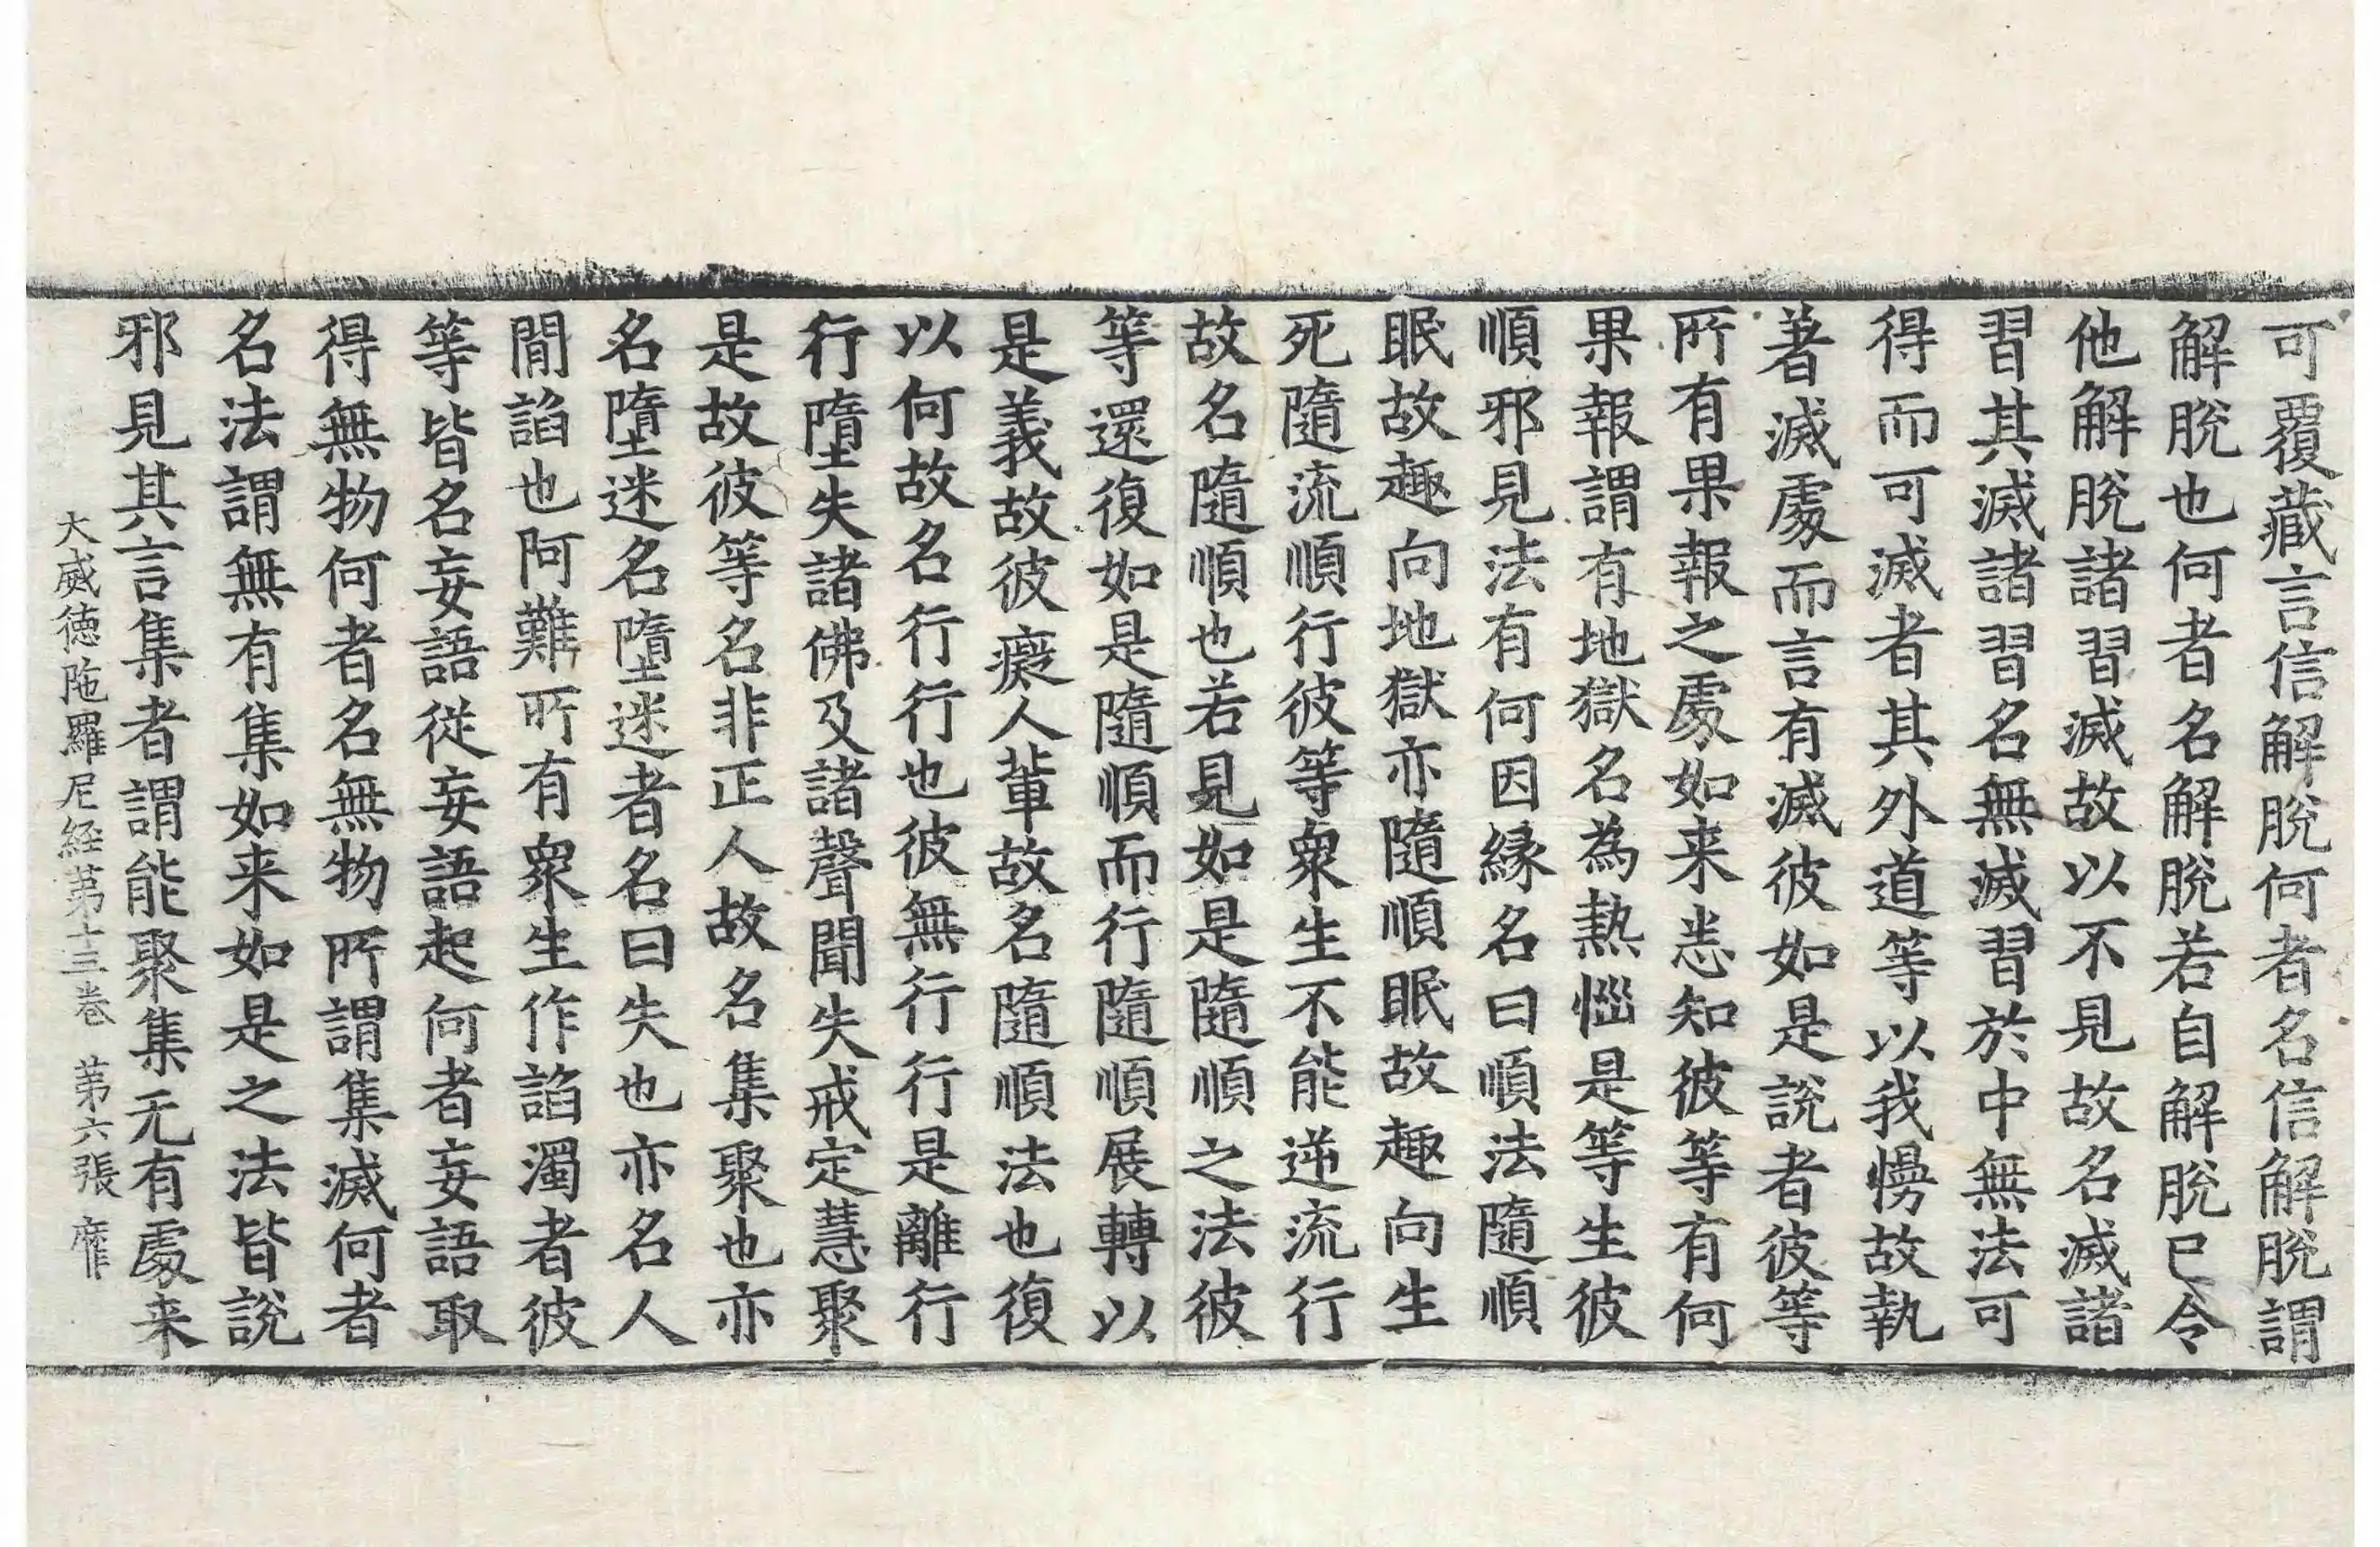 可覆藏言信解脫何者名信解脫謂
解脫也何者名解脫若自解脫已令
他解脫諸習滅故以不見故名滅諸
習其滅諸習名無滅習於中無法可
得而可滅者其外道等以我慢故執
著滅處而言有滅彼如是說者彼等
所有果報之處如来悉知彼等有何
果報謂有地獄名為熱惱是等生彼
順邪見法有何因緣名曰順法隨順
眠故趣向地獄亦隨順眠故趣向生
死隨流順行彼等眾生不能逆流行
故名隨順也若見如是隨順之法彼
等還復如是隨順而行隨順展轉以
是義故彼癡人輩故名隨順法也復
以何故名行行也彼無行行是離行
行墮失諸佛及諸聲聞失戒定慧聚
是故彼等名非正人故名集聚也亦
名墮迷名墮迷者名曰失也亦名人
間諂也阿難所有眾生作諂濁者彼
等皆名妄語從妄語起何者妄語取
得無物何者名無物所謂集滅何者
名法謂無有集如来如是之法皆說
邪見其言集者謂能聚集无有處来
大威德陁羅尼経第十三卷 第六張 靡